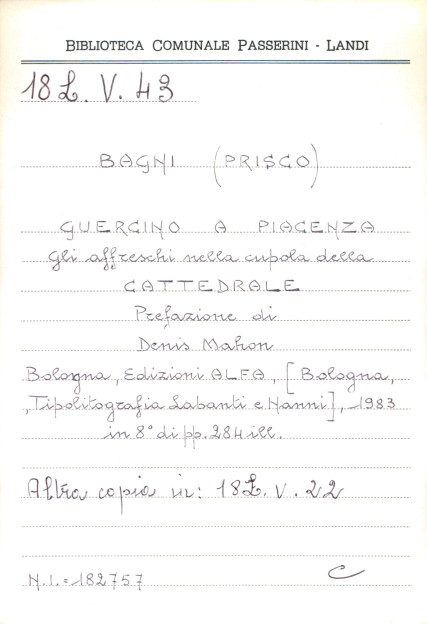 BIBLIOTECA COMUNALE PASSERINI - LANDI
18 L. V. 43
BAGNI (PRISCO)
GUERCINO A PIACENZA
Gli affreschi nella cupola della
CATTEDRALE
Prefazione di
Denis Mahon
Bologna, Edizioni ALFA, [Bologna,
,Tipolitografia Labanti e Nanni], 1983
in 8° di pp. 284 ill.
Altra copia in: 18L. V. 22
N.I. = 182757
C